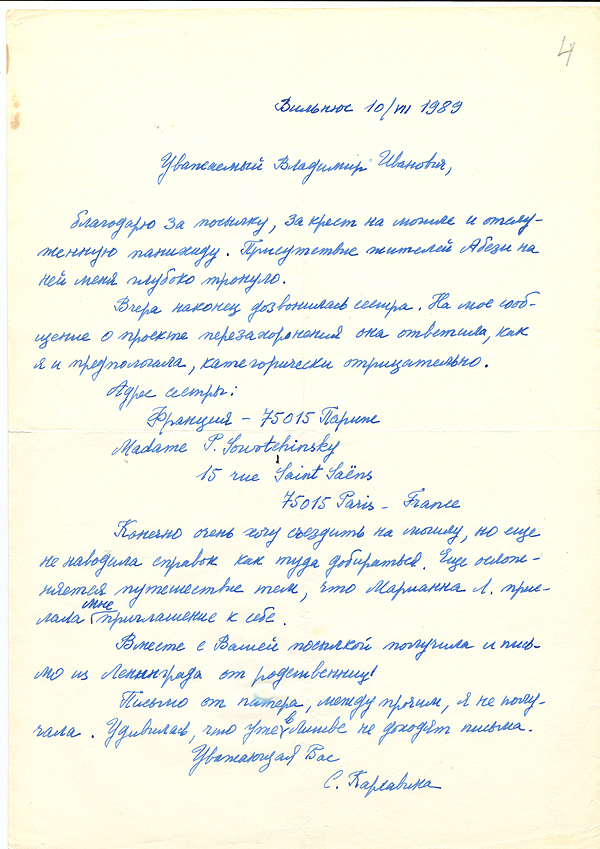 4
Вильнюс 10/VII 1989
Уважаемый Владимир Иванович,
благодарю за посылку, за крест на могиле и отслу-
женную панихиду. Присутствие жителей Абези на
ней меня глубоко тронуло.
Вчера наконец дозвонилась сестра. На мое сооб-
щение о проекте перезахоронения она ответила, как
я и предпологала, категорически отрицательно.
Адрес сестры:
Франция – 75015 Париж
Madame P. Souvtchinsky
15 rue Saint Saëns
75015 Paris – France
Конечно очень хочу съездить на могилу, но еще
не наводила справок как туда добираться. Еще ослож-
няется путешествие тем, что Марианна Л. прис-
лала мне приглашение к себе.
Вместе с Вашей посылкой получила и пись-
мо из Ленинграда от родственниц!
Письмо от патера, между прочим, я не полу-
чала. Удивилась, что уже в Литве не доходят письма.
Уважающая Вас
С. Карсавина